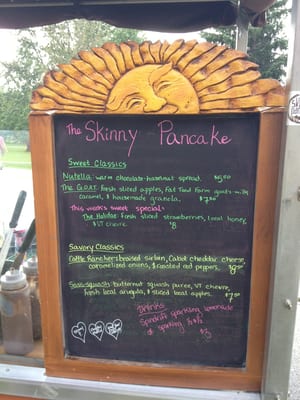 The Skinny Pancake
Sweet Classics
Nutella: warm chocolate-hazelnut spread. $5.00
The G.O.A.T. fresh sliced apples, Fat Toad Farm goat's milk
caramel, & housemade granola. $7.00
This week's sweet special:
The Holiday fresh sliced strawberries, local honey,
& VT chevre. $8
Savory Classics
braised sirloin, Cabot cheddar cheese,
caramelized onions, & roasted red peppers.
butternut squash puree, VT chevre,
fresh local arugula, & sliced local apples. $7.00
Drinks
sparkling lemonade